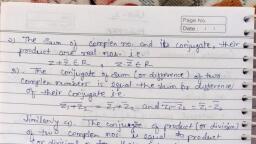 Page No.
Date : / /
2) The Sum of complex no. and its conjugate, their
product are real nos.
z + z̄ ∈ R , z z̄ ∈ R
3). The conjugate of Sum (or difference) of two
complex numbers is equal the sum (or difference)
of their conjugate i.e.
z̅₁+z̅₂ = z̄₁ + z̄₂ and z₁-z₂ = z̄₁ - z̄₂
Similarly The conjugate of product (or division)
of two complex nos. is equal to product